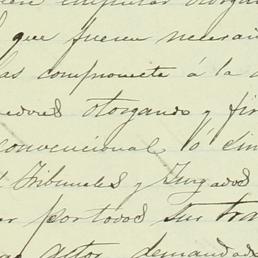 que fueren necesari
las compromete á la
otorgando y fir
convencional ó
Tribunales y Juzgados
por todos sus tra
actor, demandado